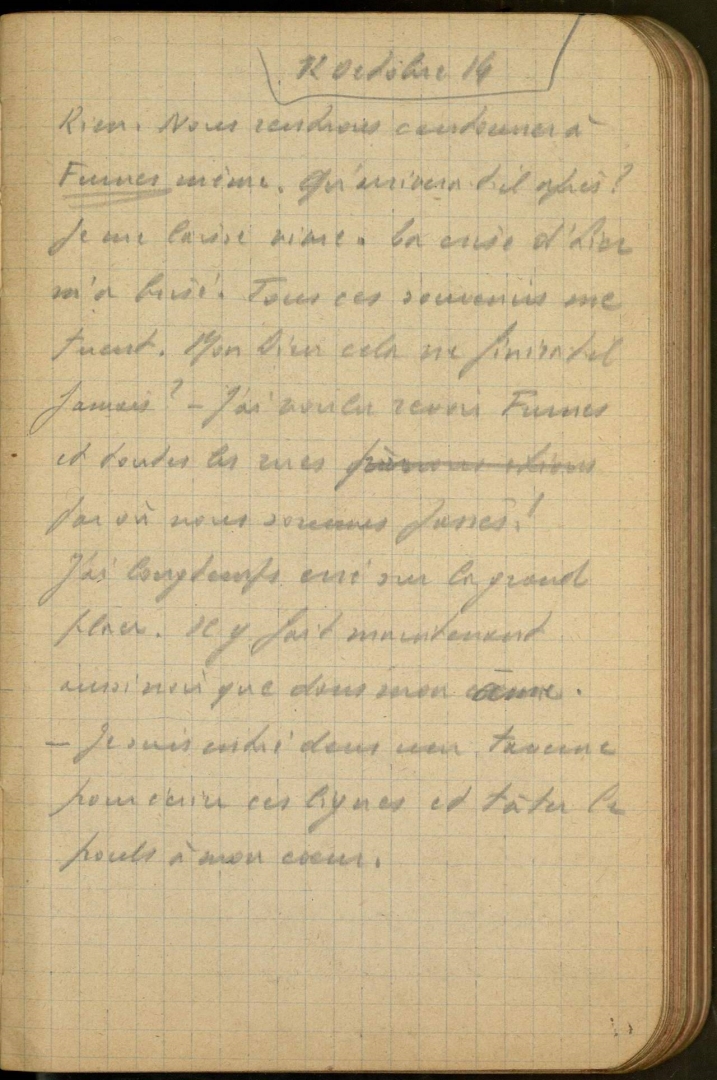 12 Octobre 14
Rien. Nous rentrons cantonner à
Furnes même. Qu'arrivera t'il après?
Je me laisse vivre. La crise d'hier
m'a brisé. Tous ces souvenirs me
tuent. Mon Dieu cela ne finira t'il
jamais? — J'ai voulu revoir Furnes
et toutes les rues
par où nous sommes passés!
J'ai longtemps erré sur la grand
place. Il y fait maintenant
aussi noir que dans mon âme.
— Je suis entré dans une taverne
pour écrire ces lignes et tâter le
pouls à mon coeur.